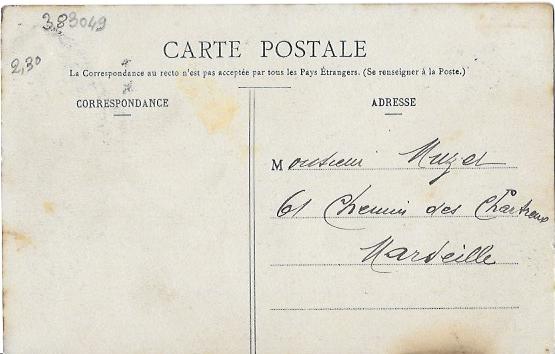 383049
2,30
CARTE POSTALE
La Correspondance au recto n'est pas acceptée par tous les Pays Étrangers. (Se renseigner à la Poste.)
CORRESPONDANCE
ADRESSE
Monsieur Muzet
61 Chemin des Chartreux
Marseille